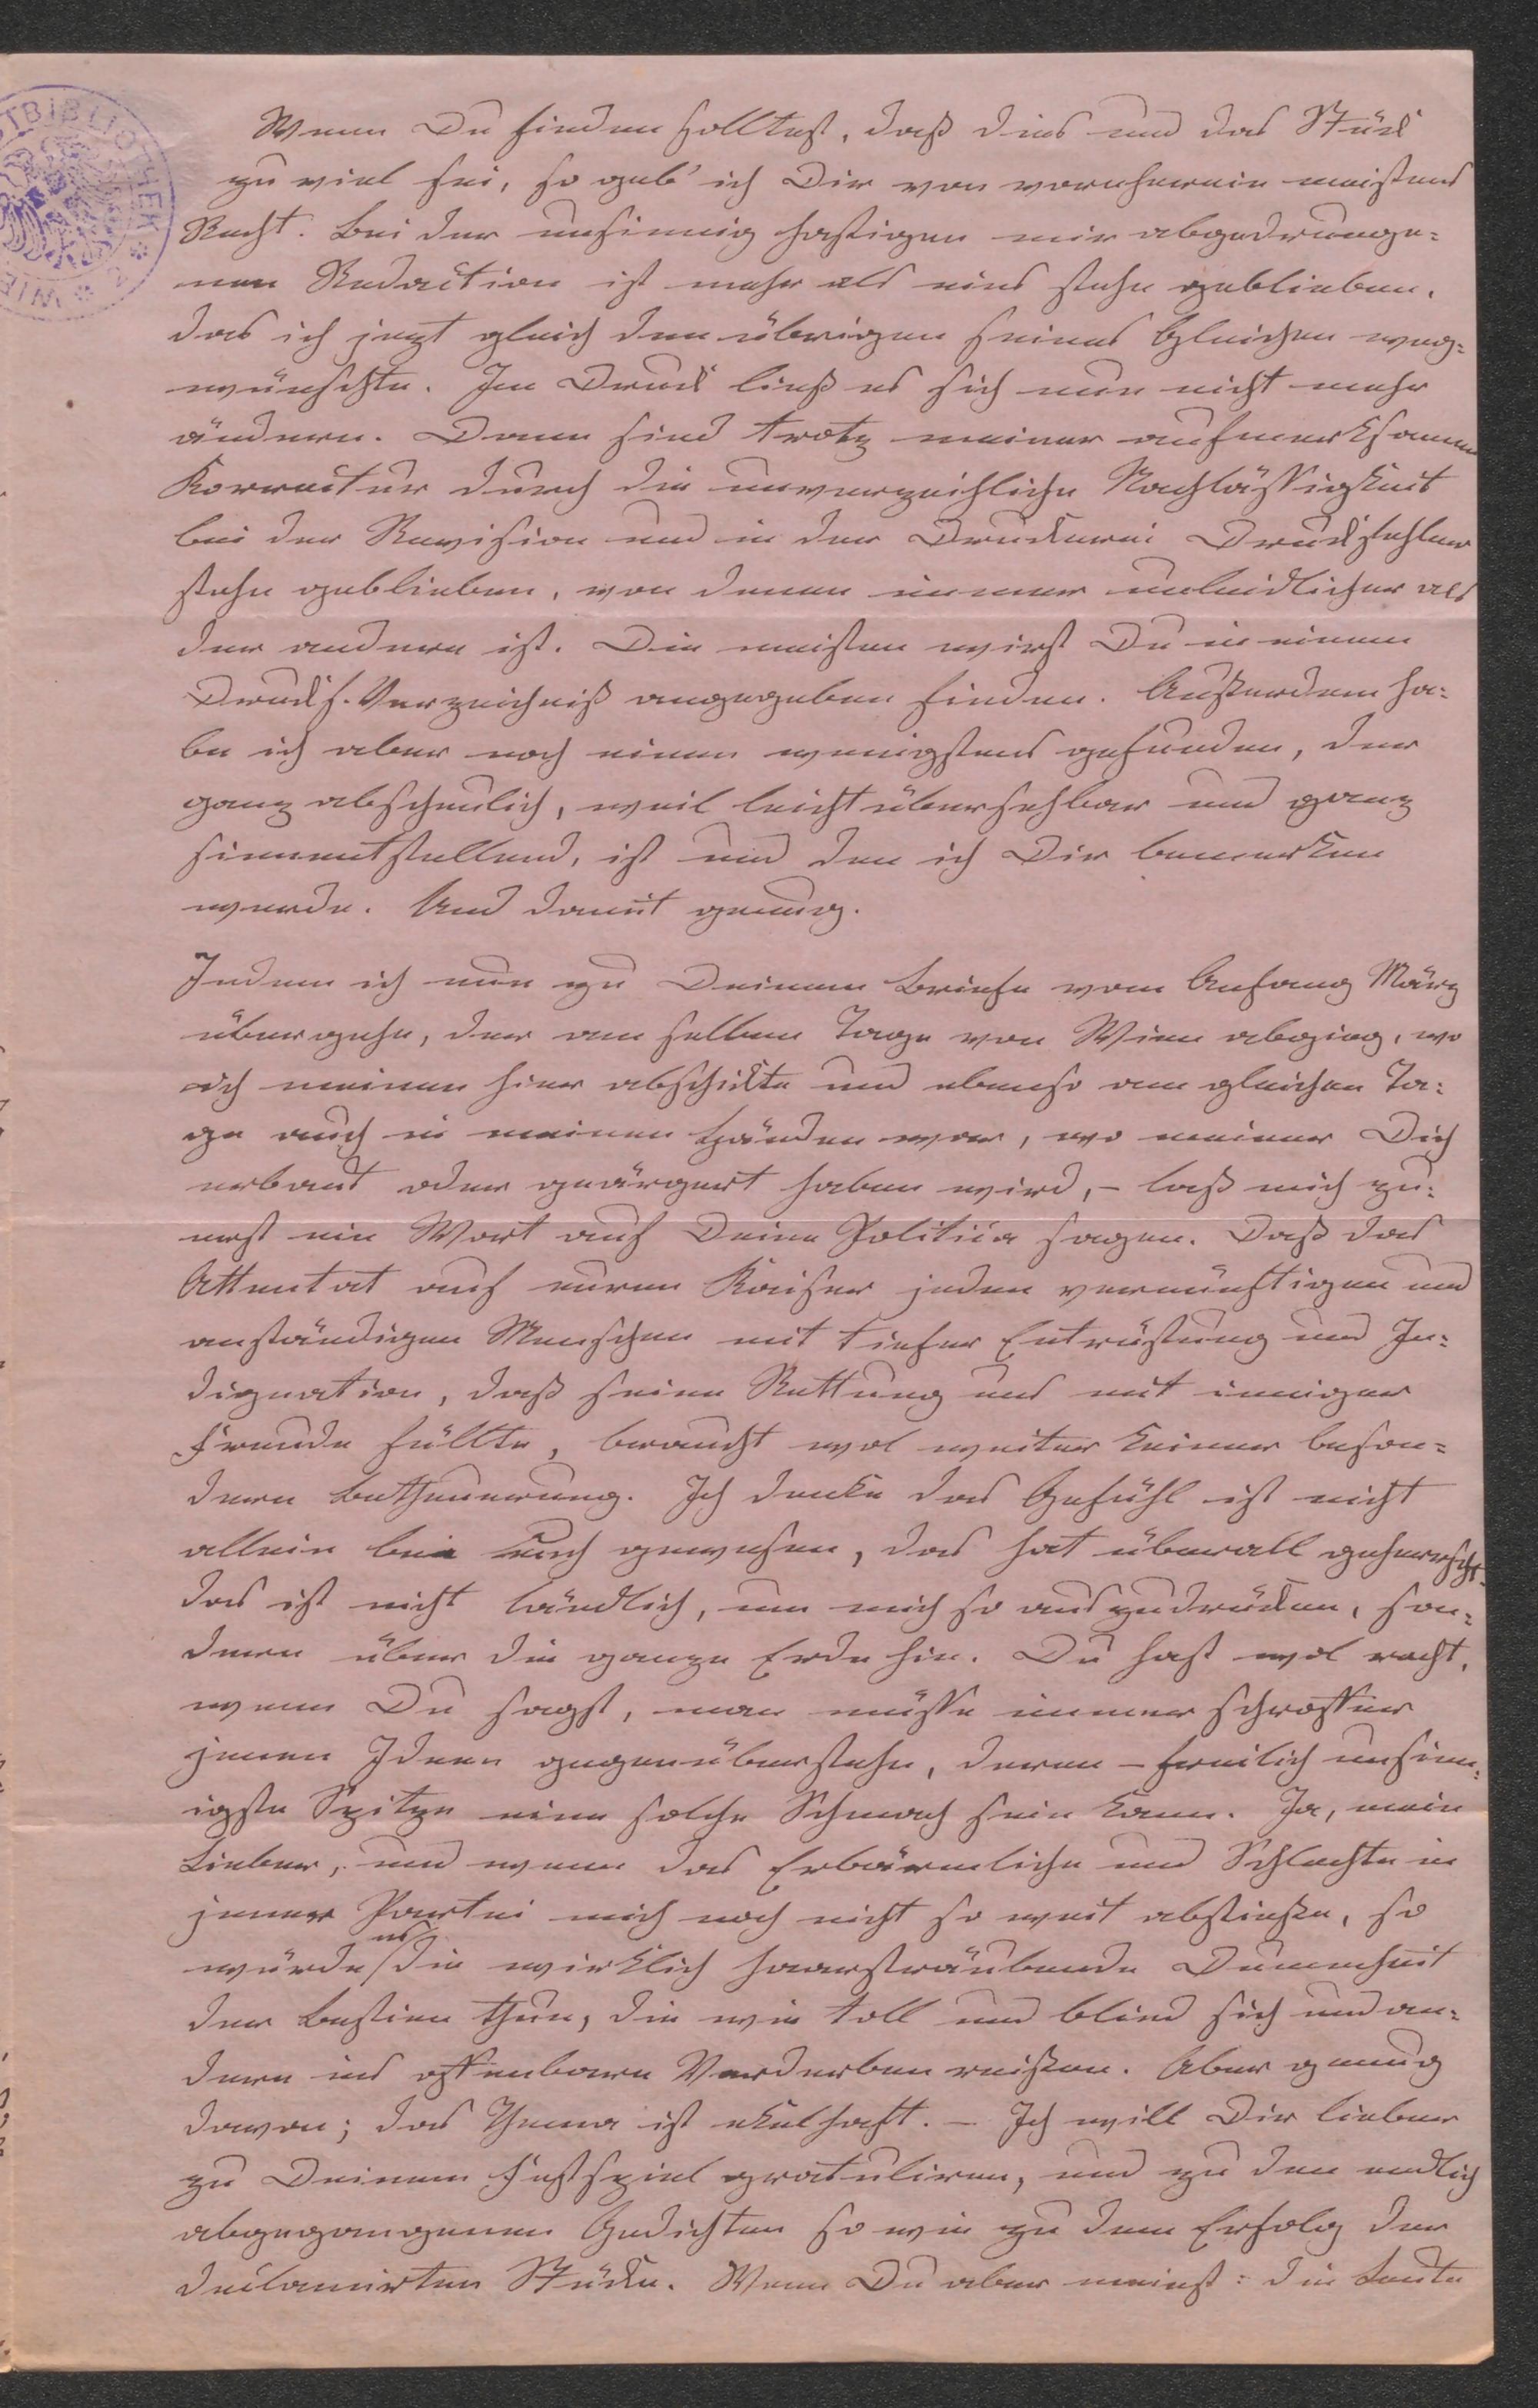 Wenn Du finden solltest, daß dies und das Stück
zu viel sei, so geb' ich Dir von vornherein meistens
Recht. Bei der unsinnig hastigen mir abgedrunge-
nen Redaction ist mehr als eins stehn geblieben,
das ich jezt gleich den übrigen seines Gleichen weg-
wünschte. Im Druck ließ es sich nun nicht mehr
ändern. Dann sind trotz meiner aufmerksamen
Korrectur durch die unverzeihliche Nachlässigkeit
bei der Revision und in der Druckerei Druckfehler
stehn geblieben, von denen immer unleidlicher als
der andere ist. Die meisten wirst Du in einem
Druckf.-Verzeichniß angegeben finden. Außerdem ha-
be ich aber noch einen wenigstens gefunden, der
ganz abscheulich, weil leicht übersehbar und ganz
sinnentstellend, ist und den ich Dir bemerken
werde. Und damit genug.
Indem ich nun zu Deinem Briefe vom Anfang März
übergehe, der am selben Tage von Wien abging, wo
ich meinen hier abschickte und ebenso am gleichen Ta-
ge auch in meinen Händen war, wo meiner Dich
erbaut oder geärgert haben wird, – laß mich zu-
erst ein Wort auf Deine Politica sagen. Daß das
Attentat auf euren Kaiser jeden vernünftigen und
anständigen Menschen mit tiefer Entrüstung und In-
dignation, daß seine Rettung uns mit inniger
Freude füllte, braucht wol weiter keiner beson-
dern Betheuerung. Ich denke das Gefühl ist nicht
allein bei euch gewesen, das hat überall geherrscht,
das ist nicht ländlich, um mich so auszudrücken, son-
dern über die ganze Erde hin. Du hast wol recht,
wenn Du sagst, man müsse immer schroffer
jenen Ideen gegenüberstehn, deren – freilich unsinn-
igste Spitze eine solche Schmach sein kann. Ja, mein
Lieber, und wenn das Erbärmliche und Schlechte in
jener Partei mich noch nicht so weit abstieße, so
würde es die wirklich haarsträubende Dummheit
der Bestien thun, die wie toll und blind sich und an-
dere ins offenbare Verderben reißen. Aber genug
davon; das Thema ist ekelhaft. – Ich will Dir lieber
zu Deinem Festspiel gratuliren, und zu den endlich
abgegangenen Gedichten so wie zu dem Erfolg der
declamirten Stücke. Wenn Du aber meinst: die Leute